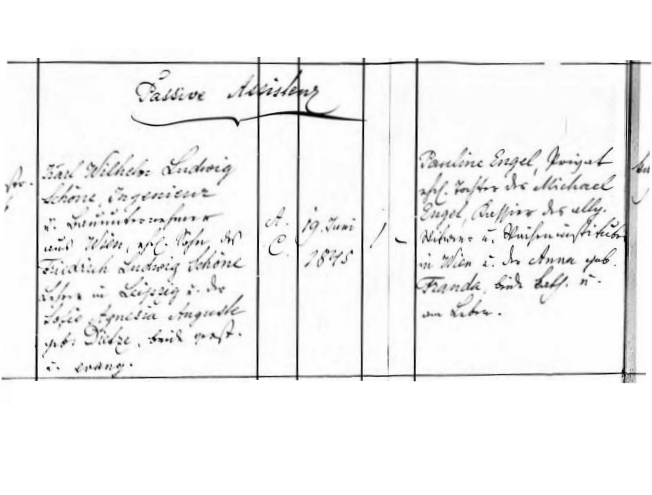 Passive Assistenz
Karl Wilhelm Ludwig
Schöne, Ingenieur
u. Bauunternehmer
aus Wien, ehl. Sohn des
Friedrich Ludwig Schöne
Lehrer in Leipzig u. der
Sofie Agnesia Auguste
geb. Dietze, beide
u. evang.
A.
C.
19. Juni
1845
1
-
Pauline Engel, Privat
ehl. Tochter des Michael
Engel, Kassier des allg.
Witwen- u. Waisen-Institutes
in Wien u. der Anna geb.
Franda, beide kath. u.
am Leben.